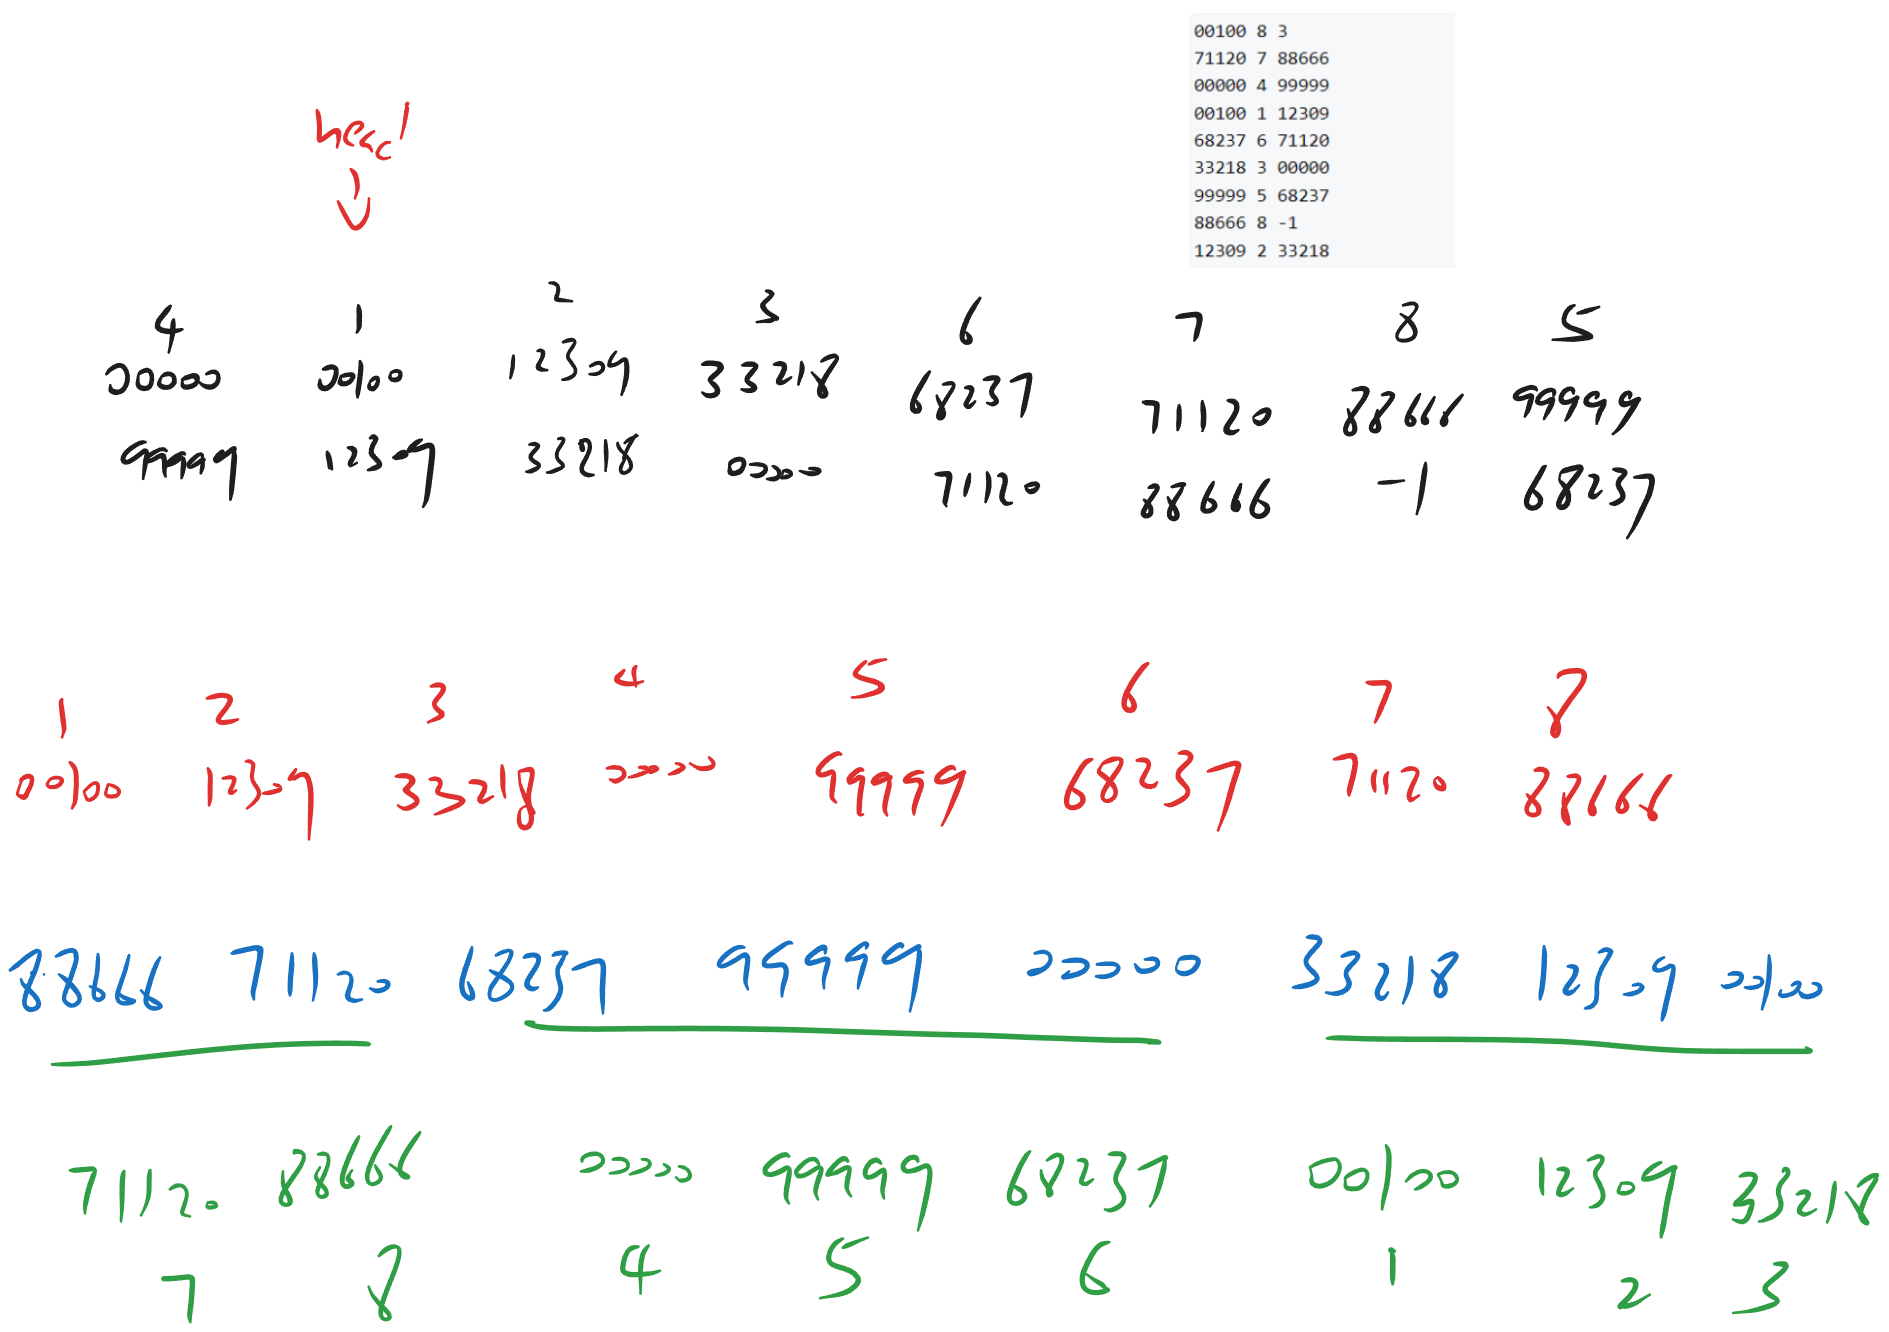 00100 8 3
71120 7 88666
00000 4 99999
00100 1 12309
68237 6 71120
33218 3 00000
99999 5 68237
88666 8 -1
12309 2 33218
head
4 1 2 3 6 7 8 5
00000 00100 12309 33218 68237 71120 88666 99999
99999 12309 33218 00000 71120 88666 -1 68237
1 2 3 4 5 6 7 8
00100 12309 33218 00000 99999 68237 71120 88666
88666 71120 68237 99999 00000 33218 12309 00100
71120 88666 00000 99999 68237 00100 12309 33218
7 8 4 5 6 1 2 3